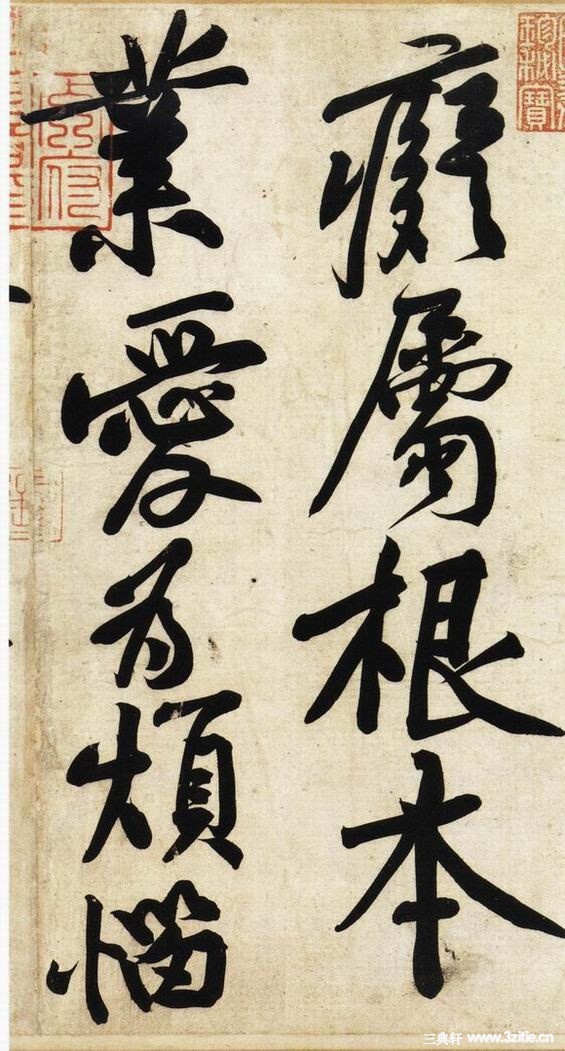 癡屬根本
業愛為煩惱
三典轩 www.3zitie.cn